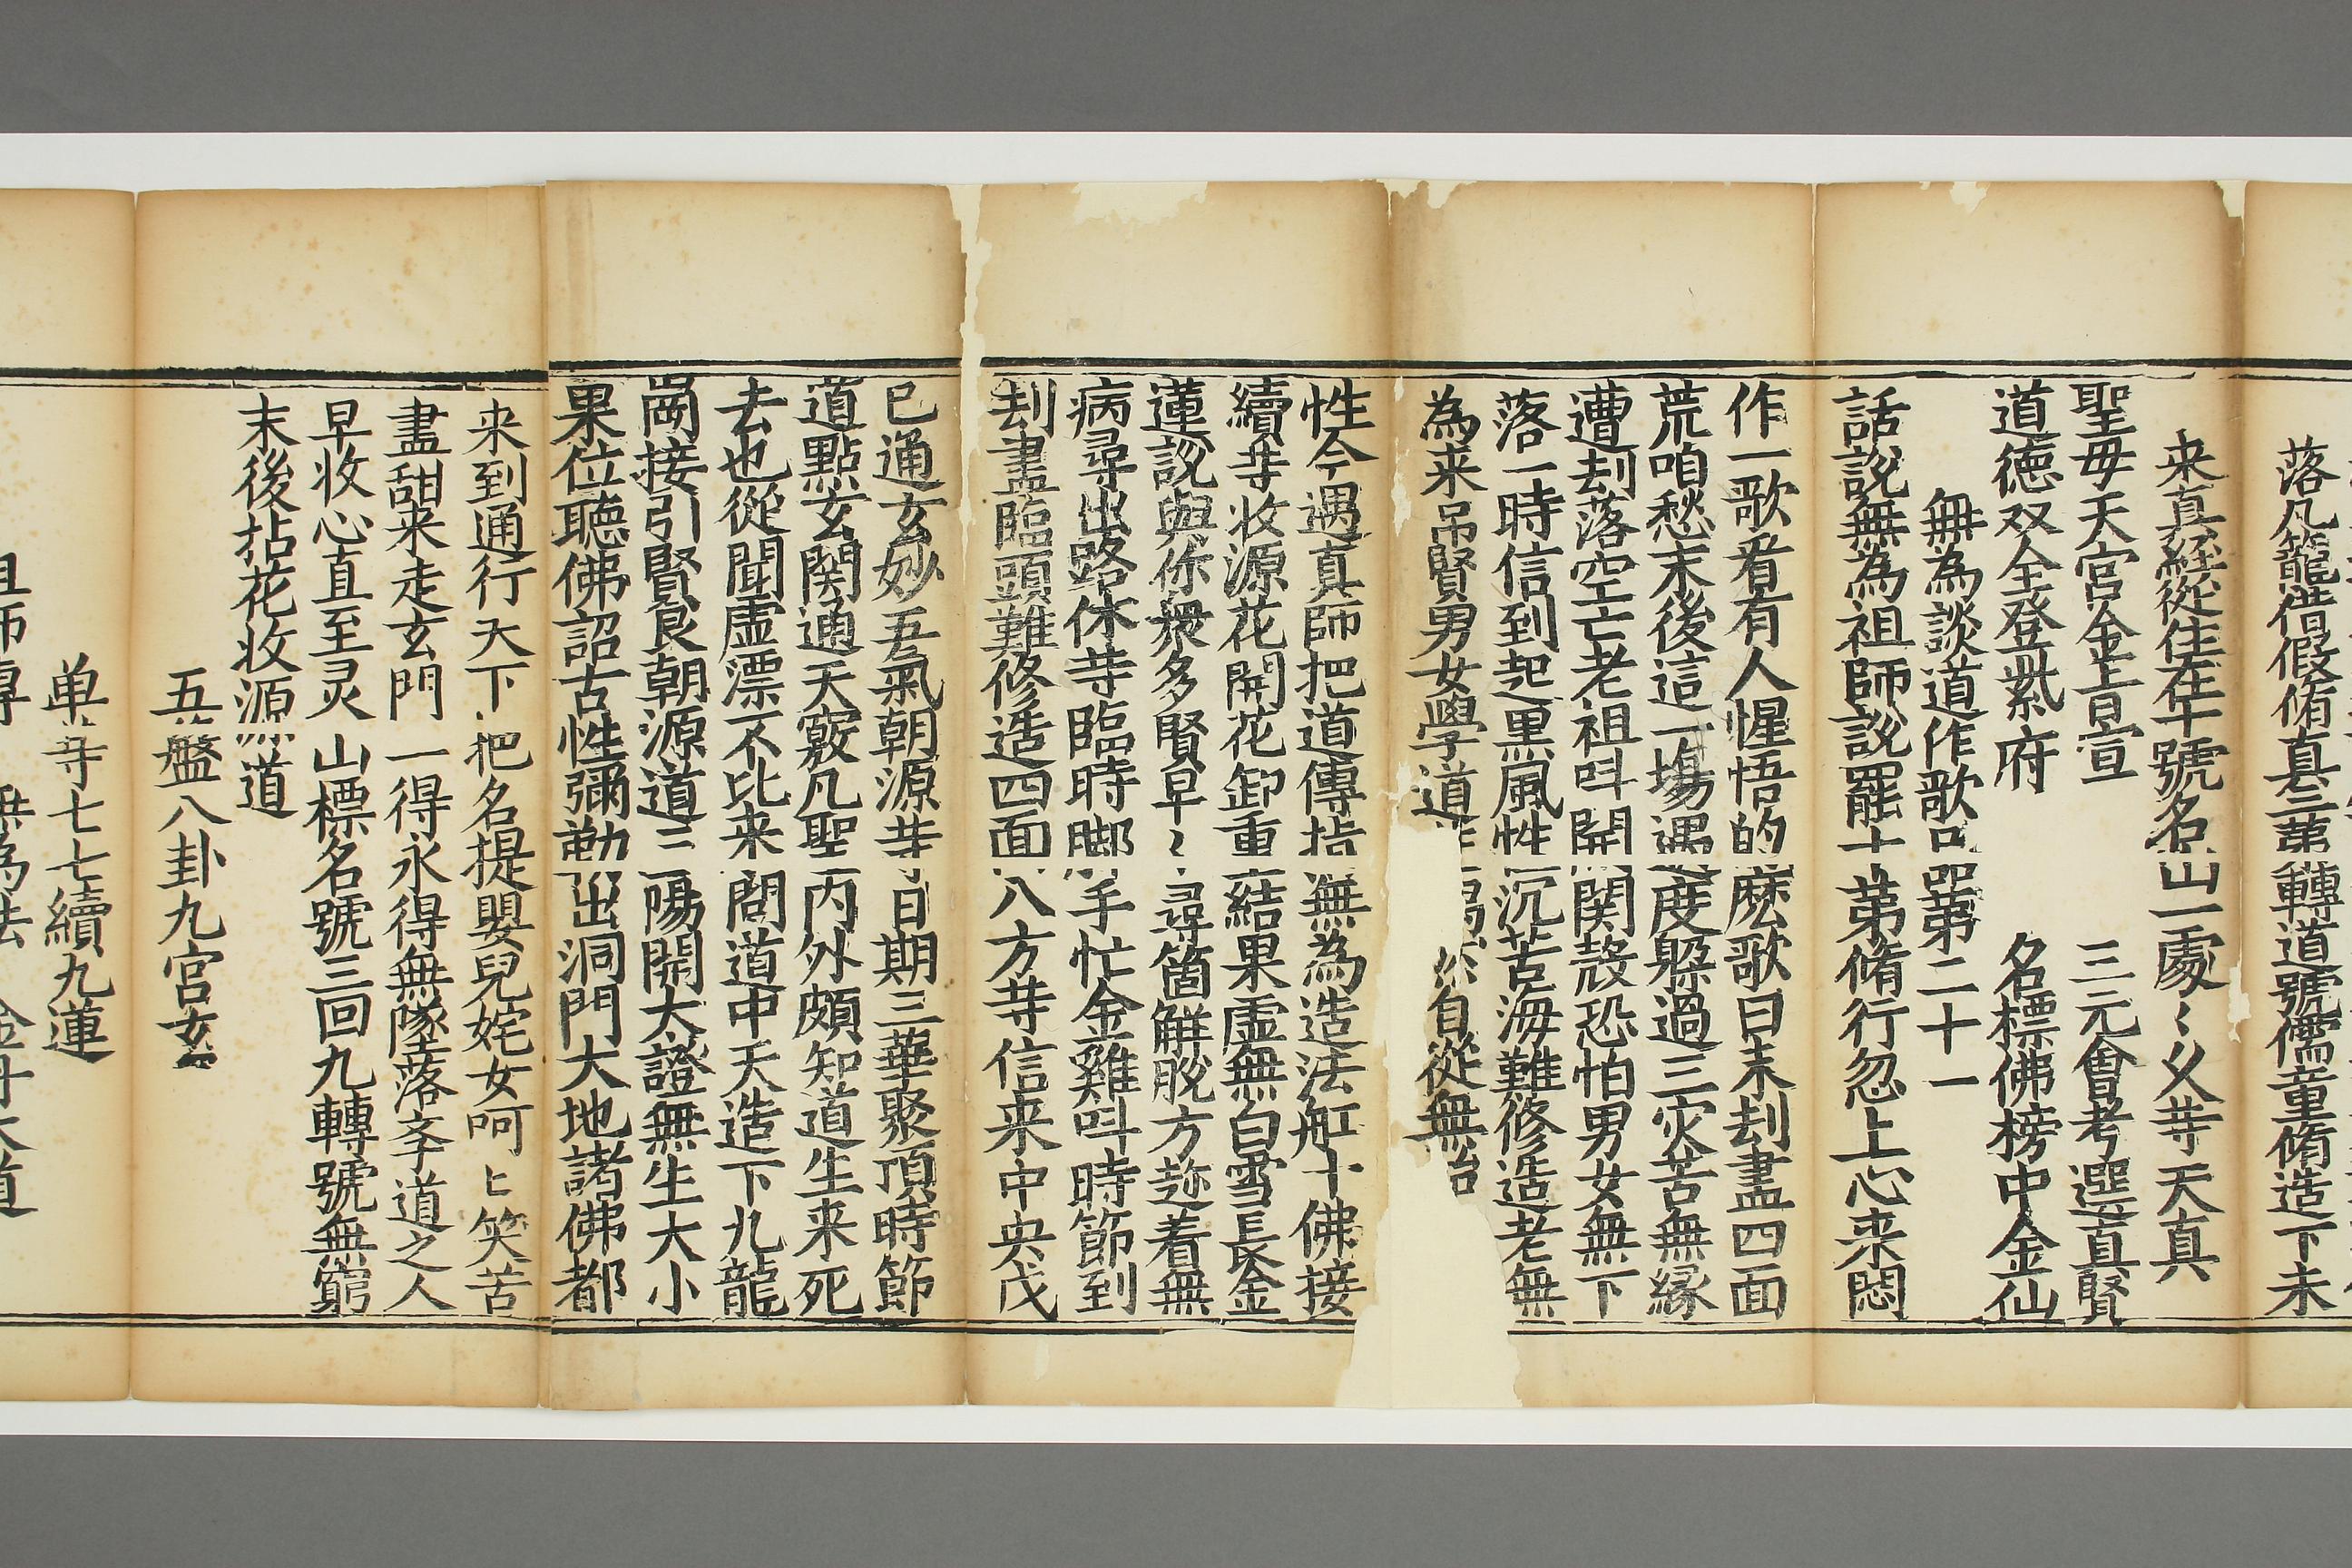 落凡籠借假脩真三苐轉道號儒童脩造下未
来真經從住在十號名山一處〻乂䒭天真
聖毋天宮金上亘宣 三元會考選真賢
道德双全登紫府 名標佛榜中金仙
無為談道作歌品苐二十一
話說無為祖師說罷十苐脩行忽上心来悶
作一歌看有人惺悟的麽歌曰末刦盡四面
荒咱愁末後這一塲遇度躱過三灾苦無縁
遭刦落空亡老祖呌開関殼恐怕男女無下
落一時信到起黒風性沉苦海難修造老無
為来吊賢男女學道 自從無始
性今遇真師把道傳指無為造法舡十佛接
續䒭收源花開花卸重結果虛無白雪長金
蓮說與你衆多賢早〻尋箇解脫方趂着無
病尋出路休䒭臨時脚手忙金雞呌時節到
刦盡臨頭難修造四面八方䒭信来中央戊
已通玄妙五氣朝源䒭日期三華聚頂時節
道點玄関通天竅凡聖内外頗知道生来死
去也從聞虛漂不比来問道中天造下九龍
崗接引賢良朝源道三陽開大證無生大小
果位聽佛詔古性彌勒出洞門大地諸佛都
来到通行天下把名提嬰兒姹女呵〻笑苦
盡甜来走玄門一得永得無墜落斈道之人
早收心直至灵山標名號三回九轉號無窮
末後拈花收源道
五盤八卦九宮玄
单䒭七七續九蓮
祖師專 無為法 金丹大道